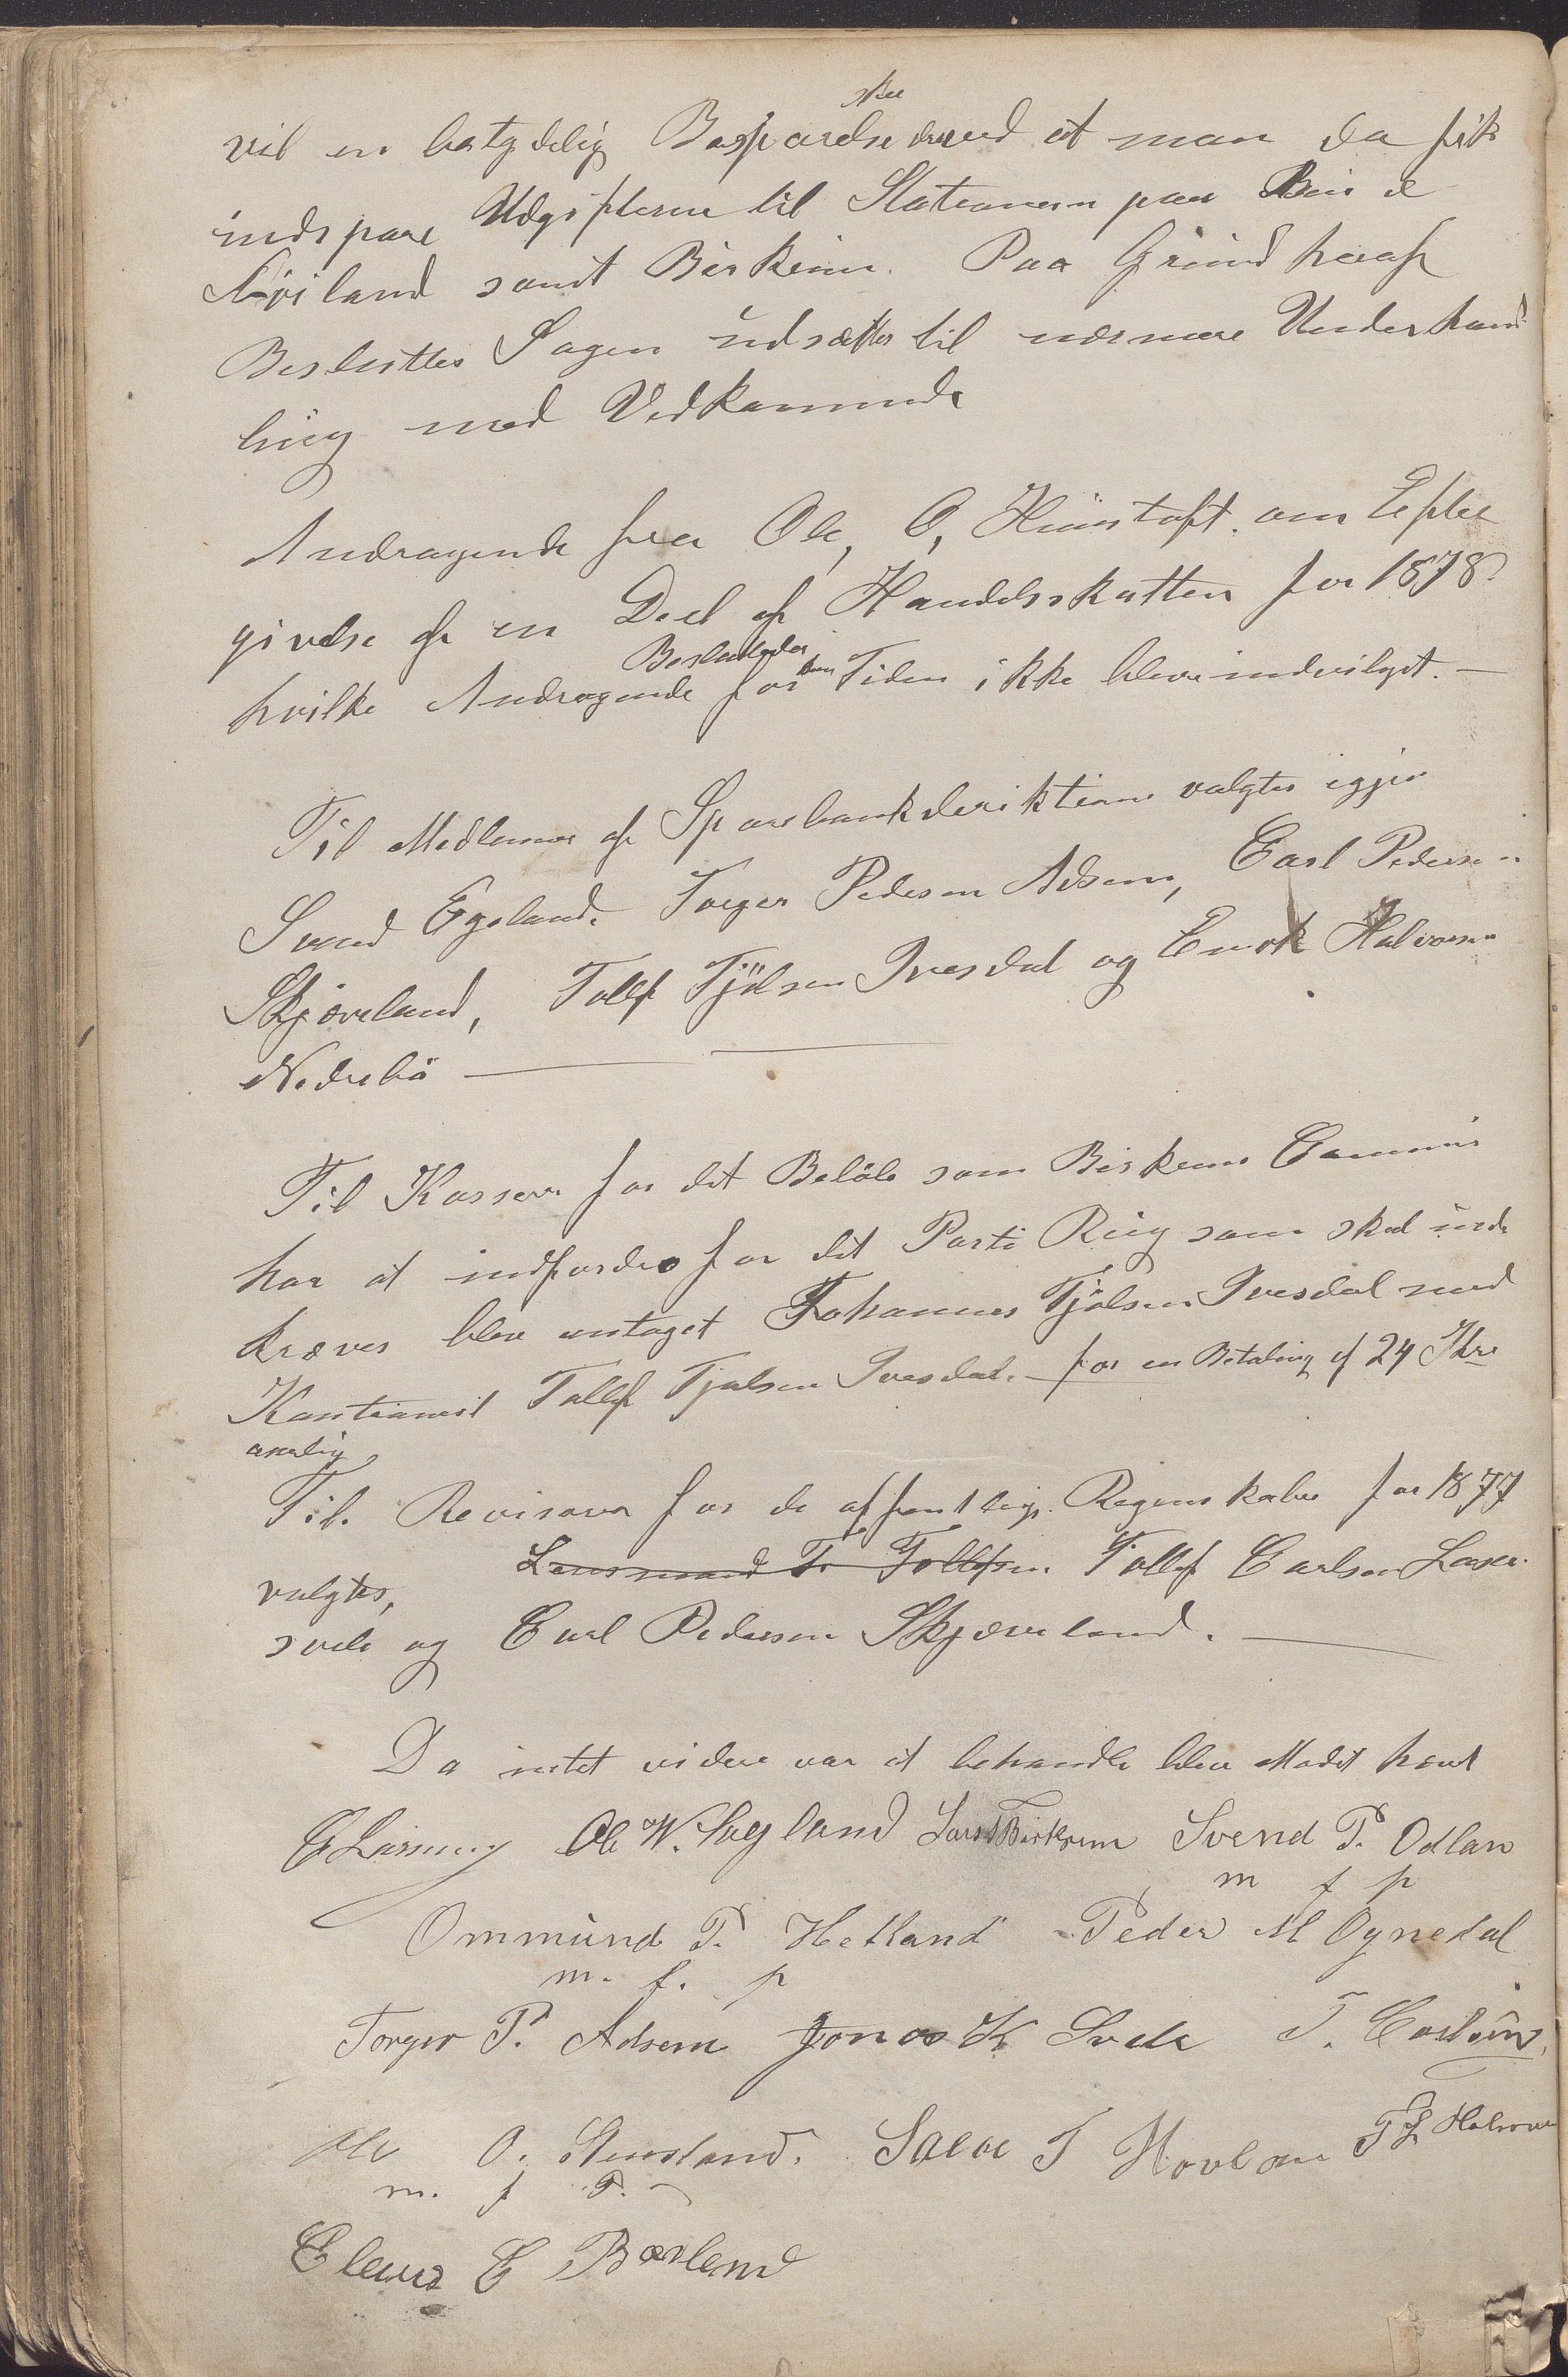 vil en betydelig Besparelse skee derved at man da fik
indspare Udgifterne til Stationerne paa Bue &
Röiland samt Birkrem. Paa Grund heraf
Besluttes Sagen udsættes til nærmere Underhand
ling med Vedkommende
Andragende fra Ole, O, Hünstoft. om Efter
givelse af en Deel af Handelsskatten for 1878.
hvilke Andragende Besluttedes for Tiden ikke blev indvilget. —
Til Medlemmer af Sparebankdirektionen valgtes igjen
Svend Egeland. Torger Pedersen Adsem, Carl Pedersen
Skjæveland, Tollf Tjölsen Ivesdal og Enok Halvorsen
Nedrebö —
Til Kasserer for det Beløb som Birkrem Commune
har at indfordre for det Parti Rug som skal ind
kræves blev antaget Johannes Tjölsen Ivesdal med
Kautionist Tollf Tjølsen Ivesdal. for en Betaling af 24 Kr.
aarlig
Til Revisorer for de offentlige Regnskaber for 1877
valgtes, Lensmand T. Tollefsen Tollf Carlsen Laxe
svele og Carl Pedersen Skjæveland. —
Da intet videre var at behandle blev Mødet hævt
Ole W. Søyland Lars Birkrem Svend P. Odlan
m f p
Ommund P. Hetland Peder M Ognedal
m. f. p
Torger P. Adsem Jonas K Svele T. Carlsen
Ole O. Stensland. Salve T Hovlan T L Halvorsen
m. f P.
Claus C Bærland